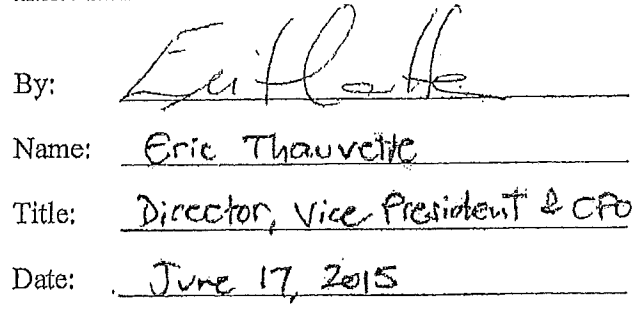 By:
Name: Eric Thauvette
Title: Director, Vice President & CFO
Date: June 17, 2015